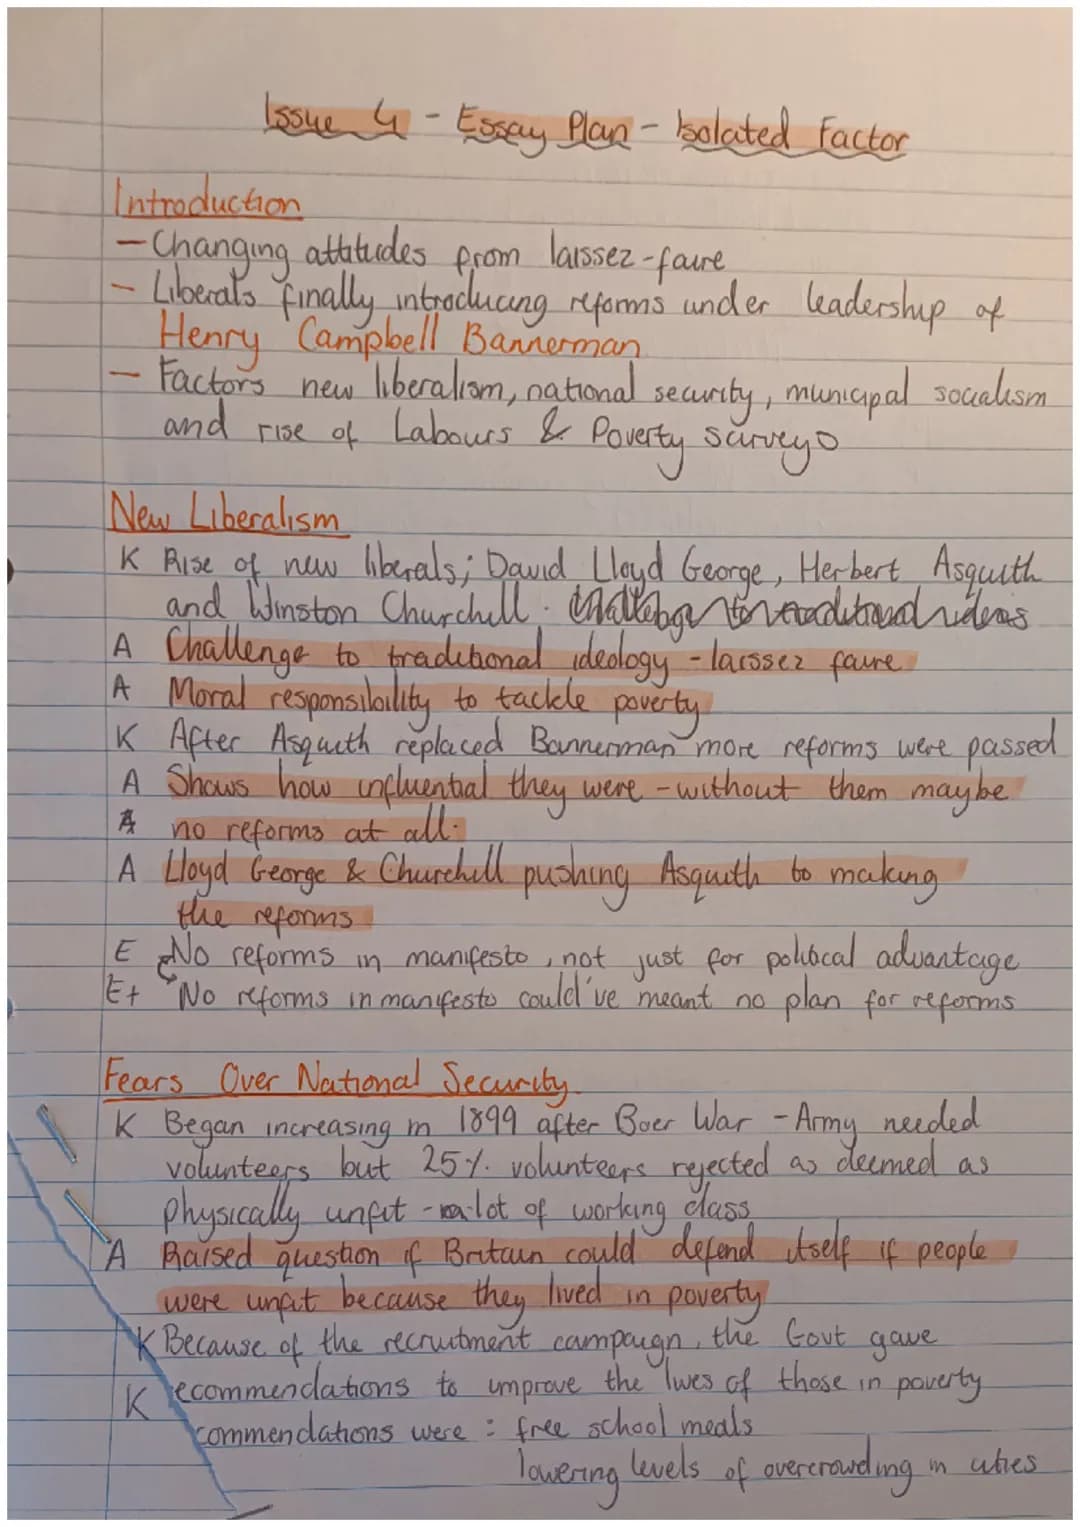 Issue 4 - Essay Plan - Isolated Factor
Introduction
- Changing attitudes from laissez-faire
- Liberals finally introducing reforms under leadership of
Henry Campbell Bannerman
- Factors new liberalism, national security, municipal socialism
and rise of Labours & Poverty surveys
New Liberalism
K Rise of new liberals; David Lloyd George, Herbert Asquith
and Winston Churchill.
A Challenge to traditional ideology - laissez faire
A Moral responsibility to tackle poverty
K After Asquith replaced Bannerman more reforms were passed
A Shows how influential they were - without them maybe
A no reforms at all.
A Lloyd George & Churchill pushing Asquith to making
the reforms
E No reforms in manifesto, not just for political advantage
E+ No reforms in manifesto could've meant no plan for reforms
Fears Over National Security
K Began increasing in 1899 after Boer War - Army needed
volunteers but 25% volunteers rejected as deemed as
physically unfit - a lot of working class
A Raised question if Britain could defend itself if people
were unfit because they lived in poverty
K Because of the recruitment campaign, the Govt gave
K ecommendations to improve the lives of those in poverty
commendations were : free school meals
lowering levels of overcrowding in cities